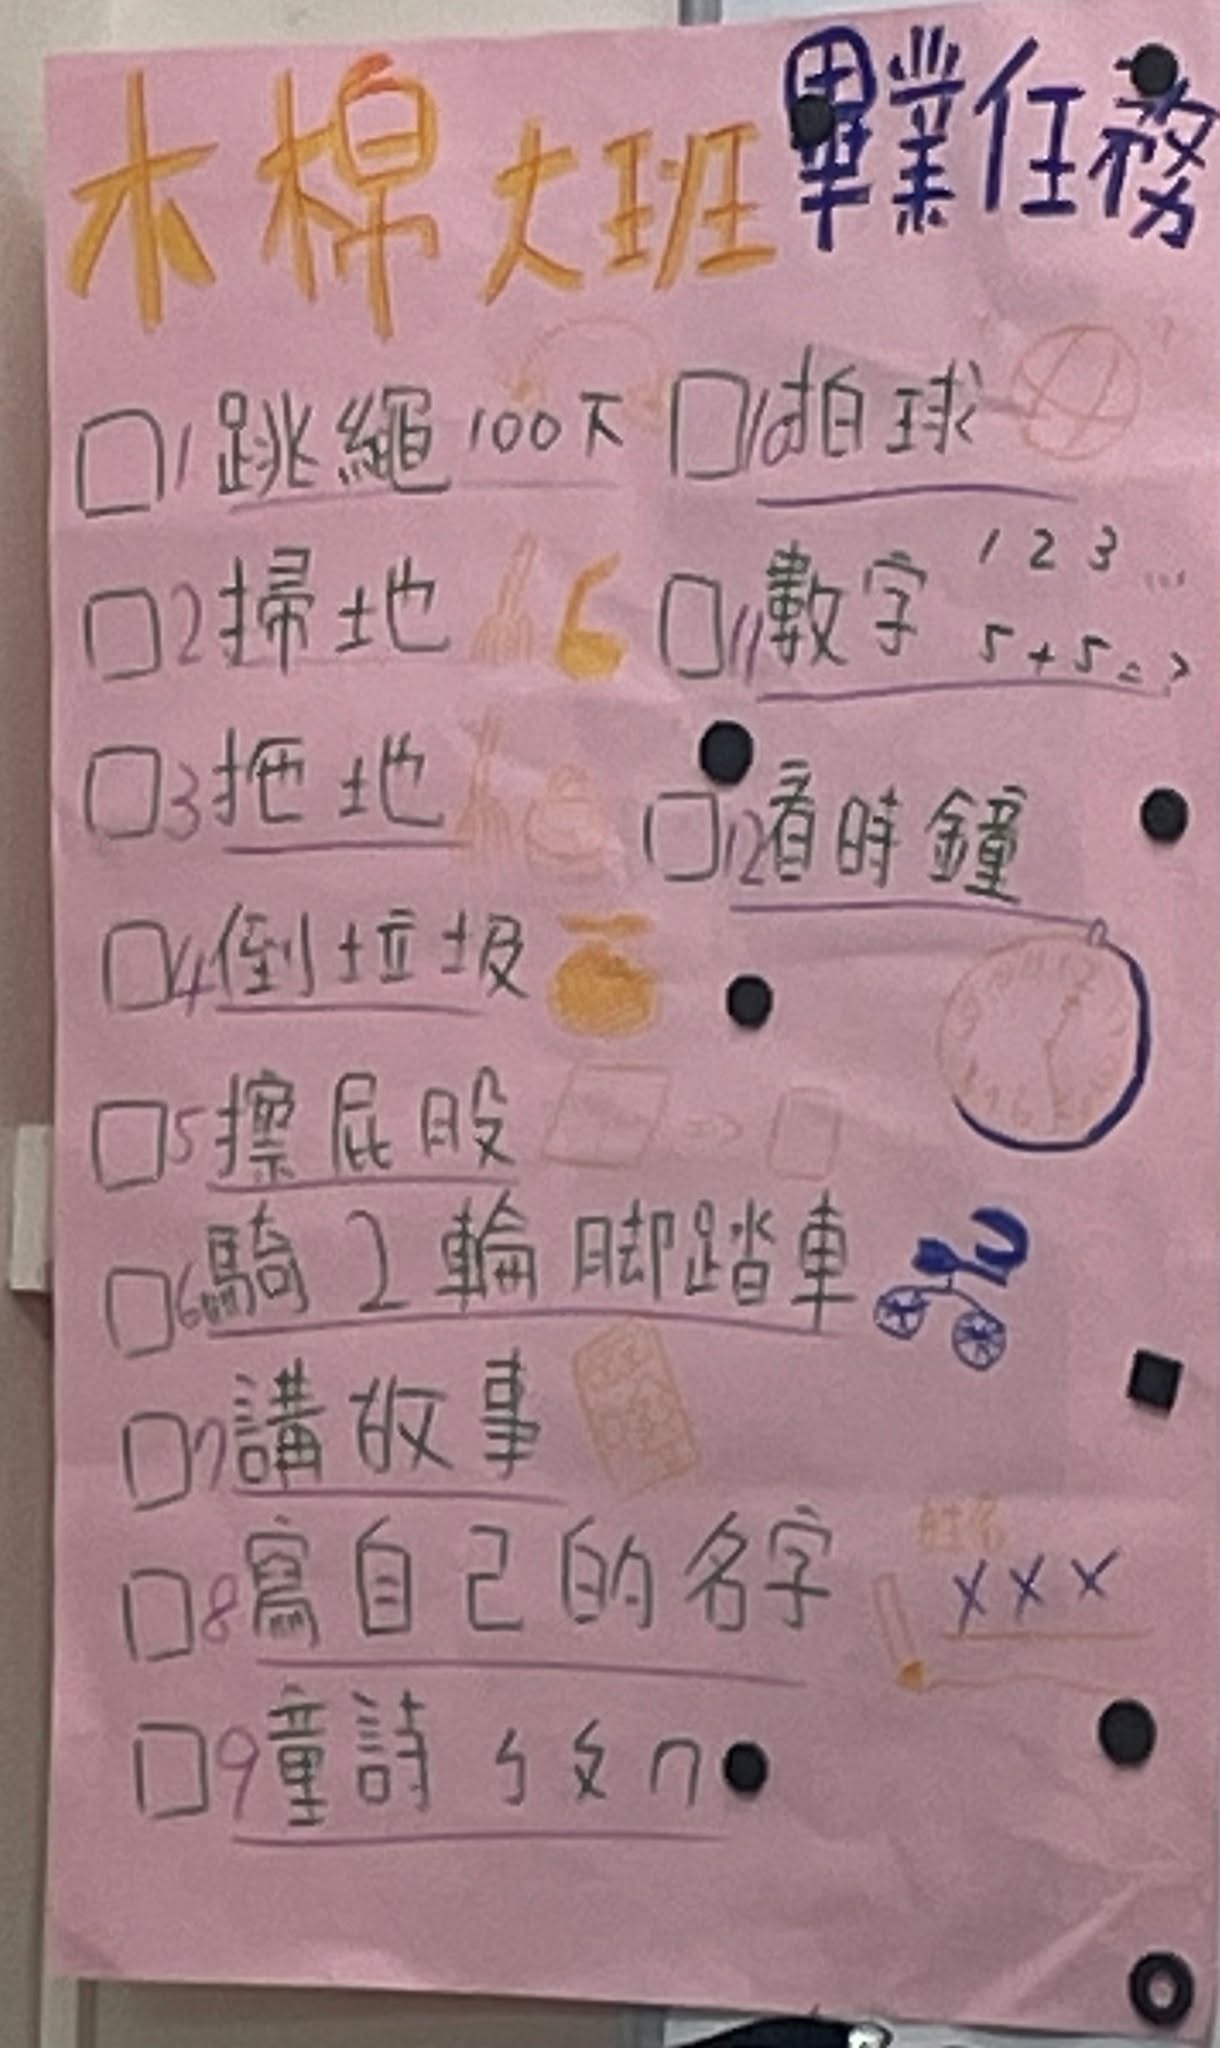 木棉大班畢業任務
1 跳繩 100下
2 掃地
3 拖地
4 倒垃圾
5 擦屁股
6 騎2輪腳踏車
7 講故事
8 寫自己的名字
姓名
XXX
9 童詩 ㄅㄆㄇ
10 拍球
11 數字 1 2 3 ...
5+5=?
12 看時鐘